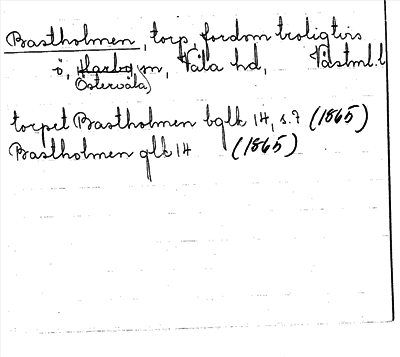 Bastholmen, torp, fordom troligtvis
i, Harbo sn, Våla hd, Västml. l
Östervåla)
torpet Bastholmen bglk 14, s. 7 (1865)
Bastholmen glk 14 (1865)